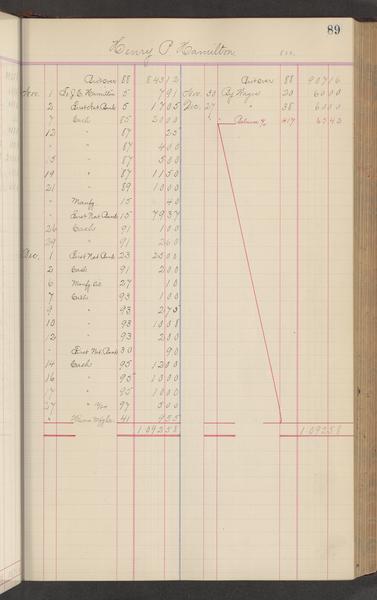 89
Henry P Hamilton
Am't over 88 843 12 Am't over 88 907 16
Nov. 1 To J.C. Hamilton 5 7 91 Nov. 30 By Wages 20 60 00
2 First Nat Bank 5 17 05 Dec. 27 " 38 60 00
7 Cash 85 20 00 " Balance 417 65 42
12 " 87 25
" " 87 4 00
15 " 87 5 00
19 " 87 11 50
21 " 89 10 00
" Manfg 15 40
" First Nat Bank 15 79 37
26 Cash 91 1 00
29 " 91 2 60
Dec. 1 First Nat Bank 23 25 00
2 Cash 91 2 00
6 Manfg 27 10
7 Cash 93 1 00
9 " 93 2 75
10 " 93 10 08
12 " 93 2 00
" First Nat Bank 30 90
14 Cash 95 12 00
16 " 95 10 00
17 " 95 10 00
27 " 97 5 00
" 41 9 55
1092 58 1092 58